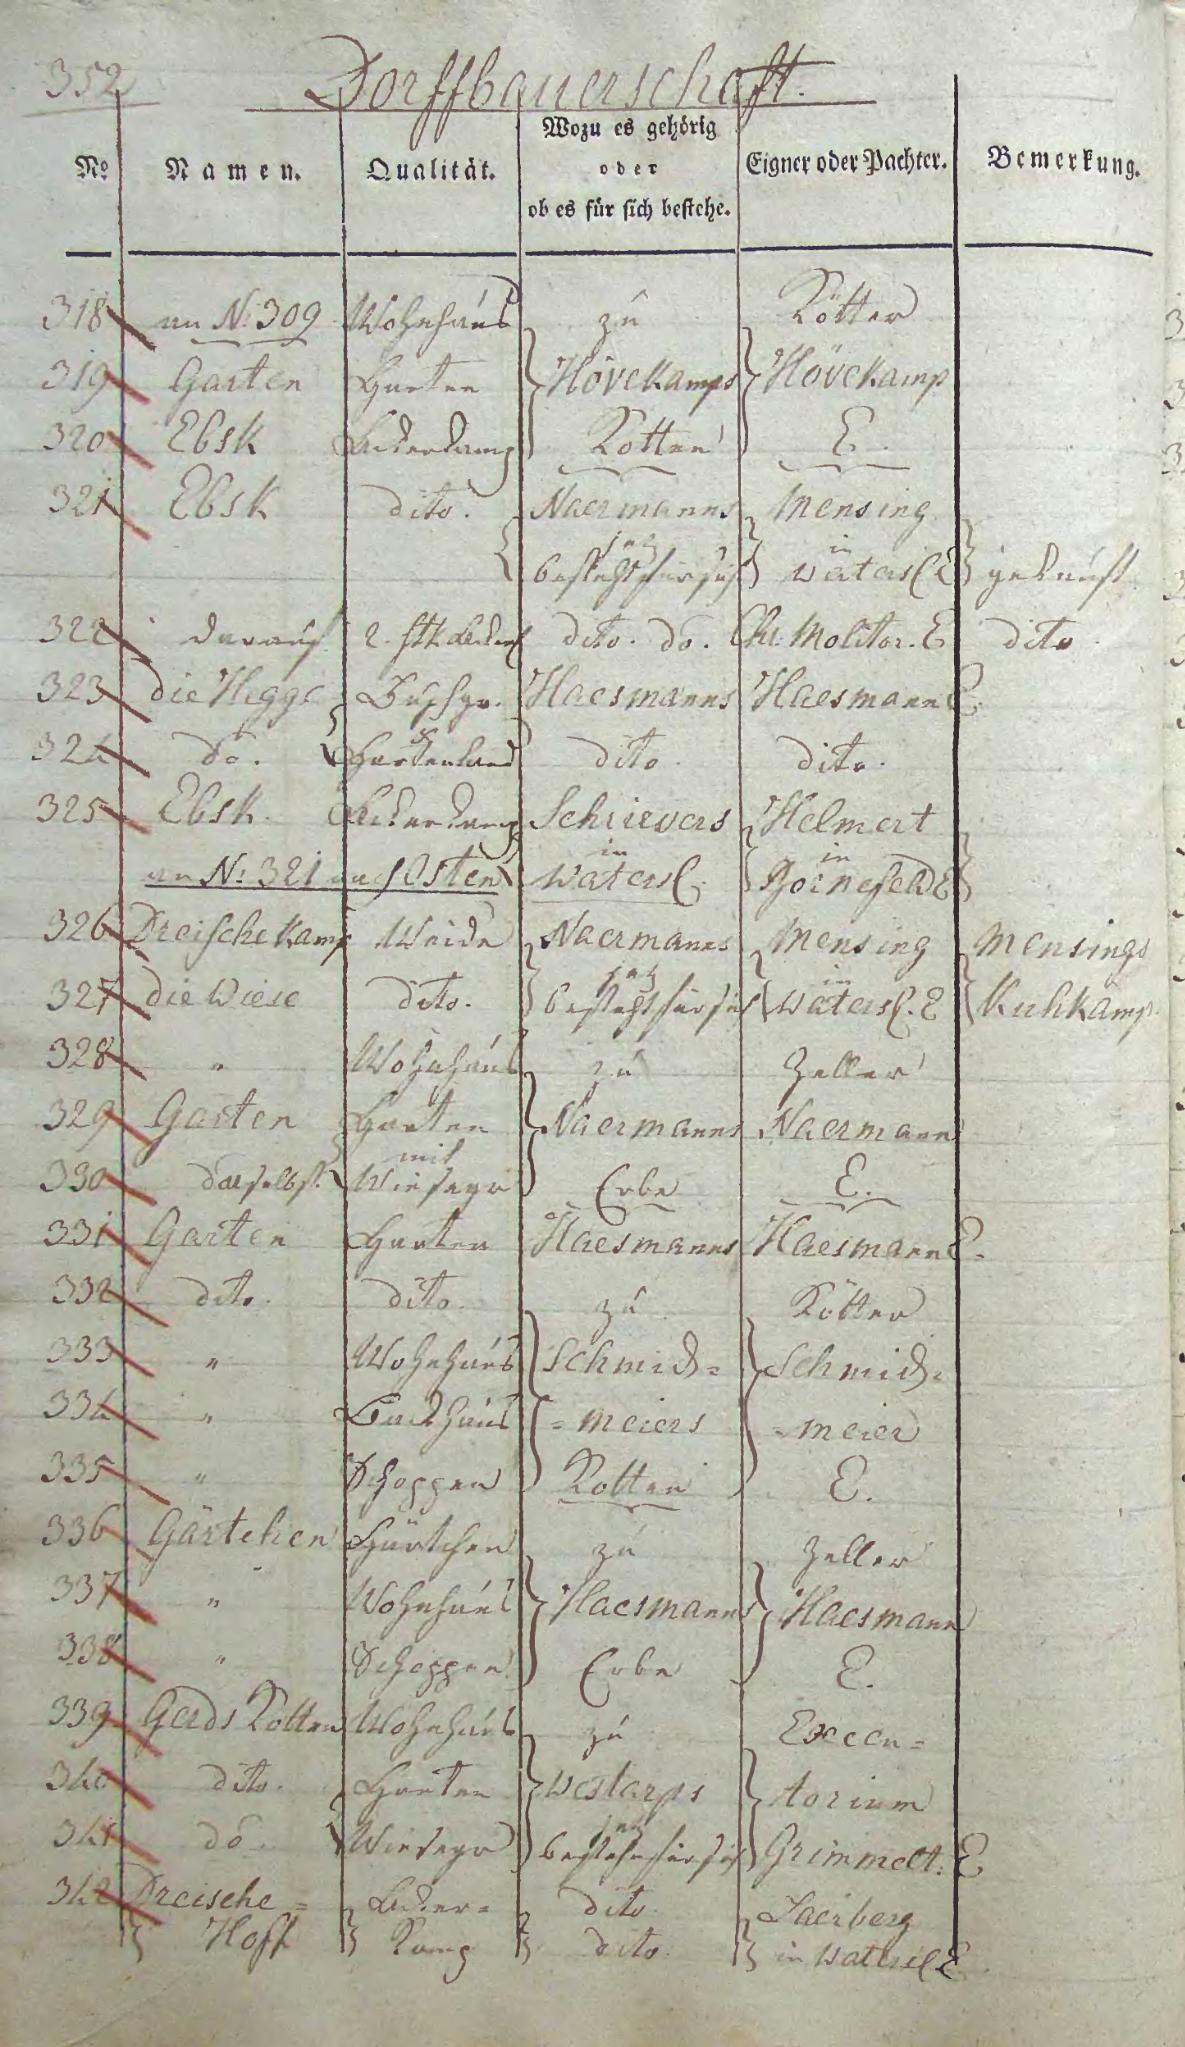 352 Dorffbauerschaft.
No Namen. Qualität. Wozu es gehörig oder ob es für sich bestehe. Eigner oder Pachter. Bemerkung.
318 an N: 309 Wohnhaus zu Kötter
319 Garten Garten Hövekamps Hövekamp
320 Ebsk Ackerkamp Kotten E.
321 Ebsk dito. Naermanns Mensing
jetz in
besteht für sich Watersl E gekauft
322 darauf 2. stk. dito. do. Chr. Molitor. E dito
323 die Hegge Buschgr. Haesmanns Haesmann E.
324 do. Gartenland dito. dito.
325 Ebsk. Ackerkamp Schrievers Helmert
in in
an N: 321 nach Osten Watersl. Bornefeld E
326 Dreische Kamp Weide Naermanns Mensing Mensings
jetz in
327 die Wiese dito. besteht für sich Watersl. E Kuhkamp.
328 " Wohnhaus zu Zeller
329 Garten Garten Naermanns Naermann
mit
330 daselbst. Wiesegr Erbe E.
331 Garten Garten Haesmanns Haesmann E.
332 dito. dito. zu Kötter
333 " Wohnhaus Schmid= Schmid=
334 " Backhaus =meiers =meier
335 " Schoppen Kotten E.
336 Gärtchen Gärtchen zu Zeller
337 " Wohnhaus Haesmanns Haesmann
338 " Schoppen Erbe E.
339 Gerds Kotten Wohnhaus zu Execu=
340 dito. Garten Westarps torium
jetz
341 do. Wiesegr bestehn für sich Grimmelt. E
342 Dreische= Acker= dito. Laerberg
Hoff Kamp dito. in Watersl E